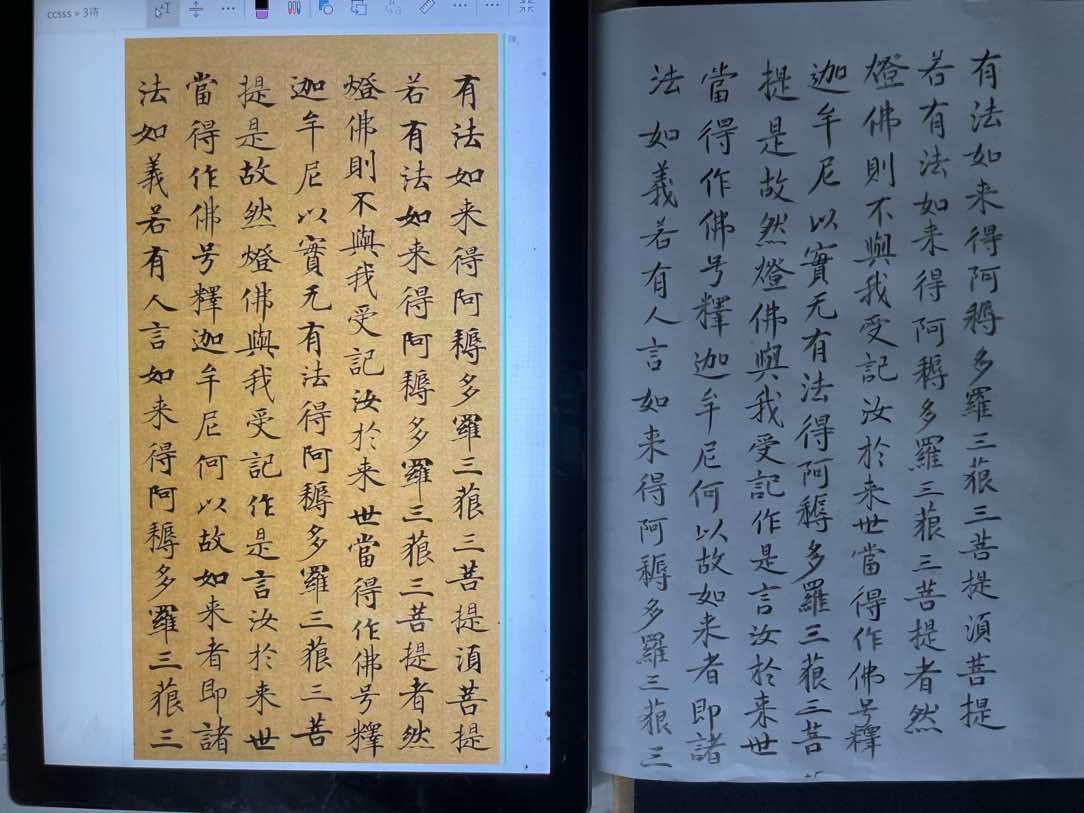 ccsss » 3待
有法如来得阿耨多羅三藐三菩提湏菩提
若有法如来得阿耨多羅三藐三菩提者然
燈佛則不與我受記汝於来世當得作佛号釋
迦牟尼以實无有法得阿耨多羅三藐三菩
提是故然燈佛與我受記作是言汝於来世
當得作佛号釋迦牟尼何以故如来者即諸
法如義若有人言如来得阿耨多羅三藐三
有法如来得阿耨多羅三藐三菩提湏菩提
若有法如来得阿耨多羅三藐三菩提者然
燈佛則不與我受記汝於来世當得作佛号釋
迦牟尼以實无有法得阿耨多羅三藐三菩
提是故然燈佛與我受記作是言汝於来世
當得作佛号釋迦牟尼何以故如来者即諸
法如義若有人言如来得阿耨多羅三藐三